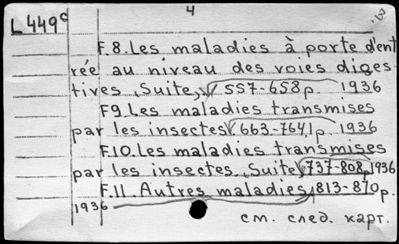 L449c 4
F.8. Les maladies à porte d'ent
rée au niveau des voies diges
tives, Suite, 557-658 p. 1936
F9. Les maladies transmises
par les insectes. 663-764,1 p. 1936
F.10. Les maladies transmises
par les insectes. Suite, 737-808, 1936
F.11. Autres maladies, 813-870 p.
1936
см. след. карт.